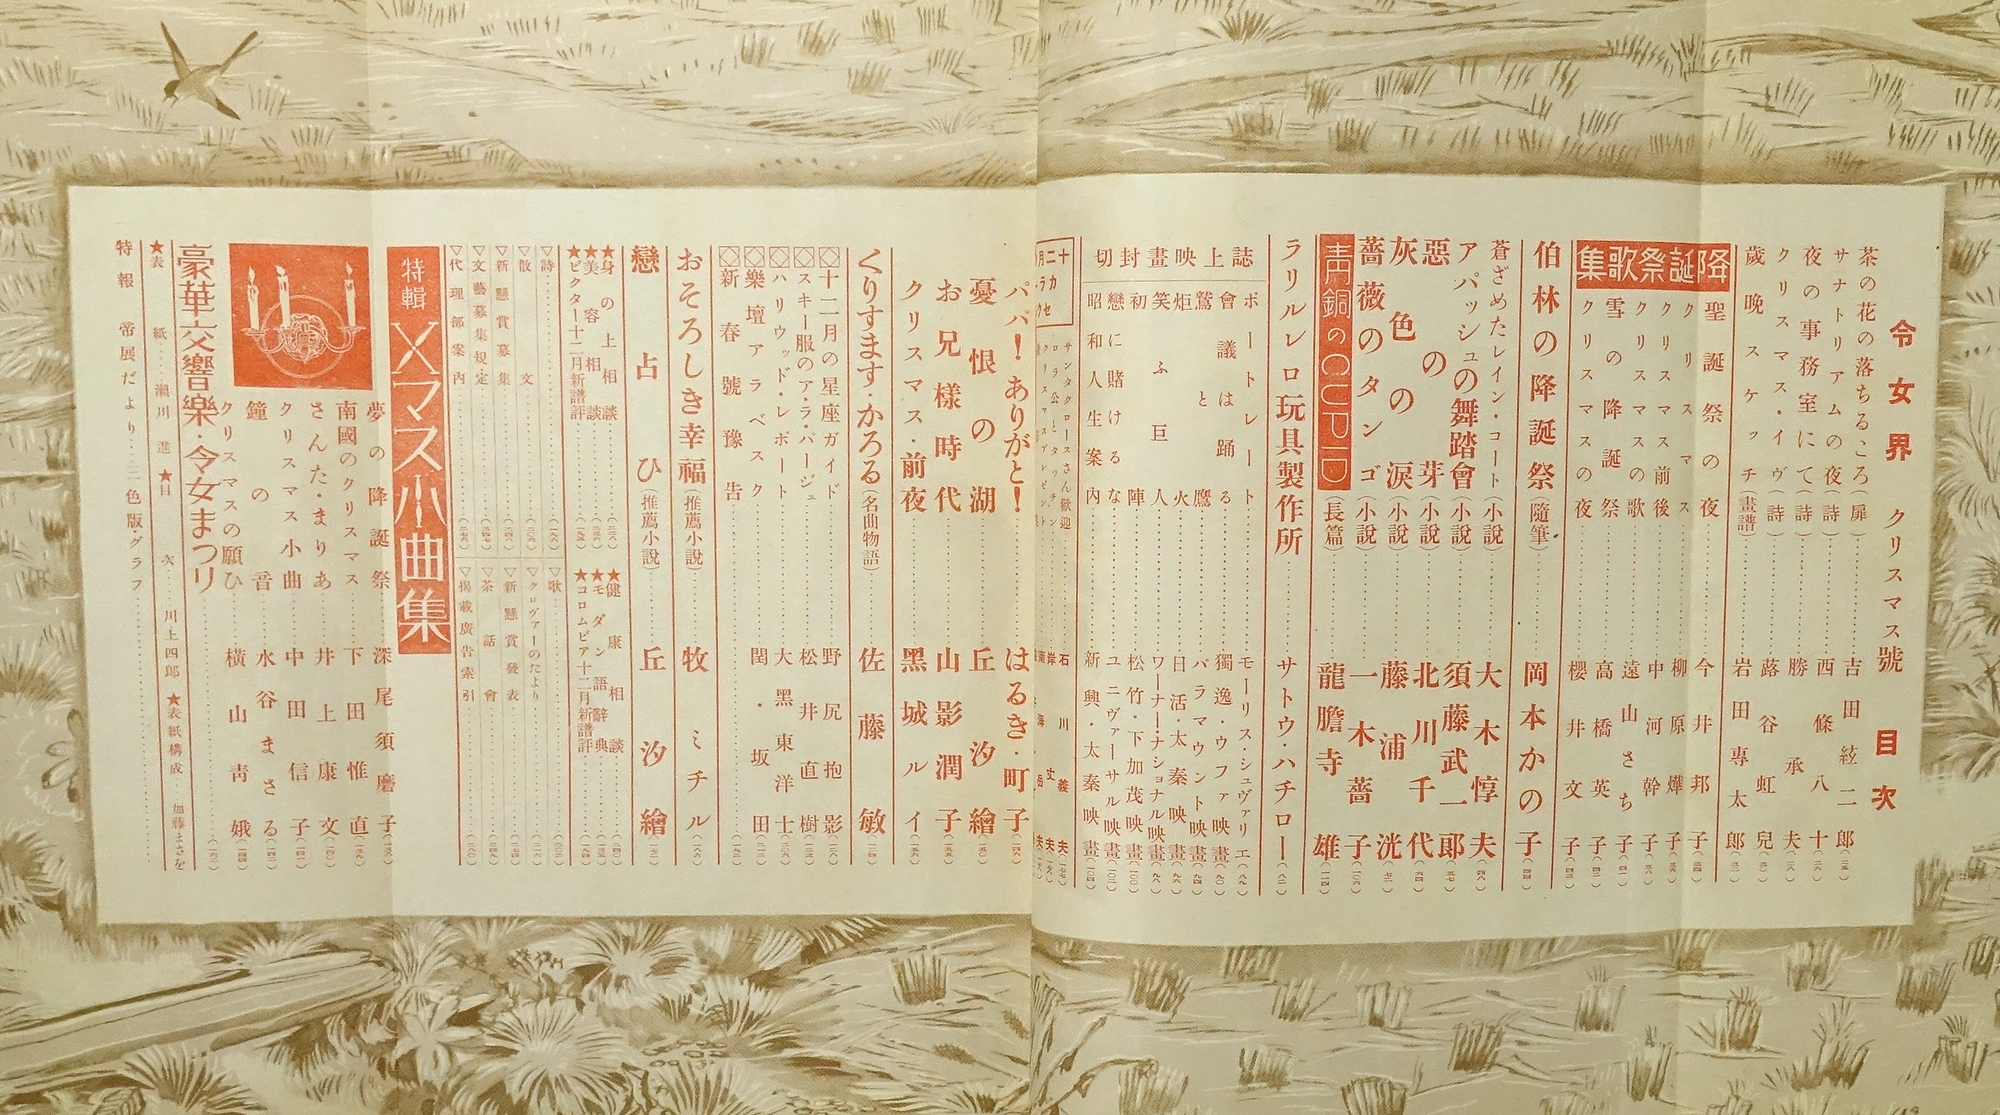 令女界 クリスマス號 目次
茶の花の落ちるころ(扉)……吉田絃二郎
サナトリアムの夜(詩)……西條八十
夜の事務室にて(詩)……勝承夫
クリスマス・イヴ(詩)……蕗谷虹兒
歲晩スケッチ(畫譜)……岩田專太郎
降誕祭歌集
聖誕祭の夜……今井邦子
クリスマス……柳原燁子
クリスマス前後……中河幹子
クリスマスの歌……遠山さち子
雪の降誕祭……高橋英子
クリスマスの夜……櫻井文子
伯林の降誕祭(隨筆)……岡本かの子
蒼ざめたレイン・コート(小說)……大木惇夫
アパッシュの舞踏會(小說)……須藤武一郎
惡の芽(小說)……北川千代
灰色の淚(小說)……藤浦洸
薔薇のタンゴ(小說)……一木薔子
靑銅のCUPID(長篇)……龍膽寺雄
ラリルレロ玩具製作所……サトウ・ハチロー
誌上映畫封切
ポートレート……モーリス・シュヴァリエ
會議は踊る……獨逸・ウファ映畫
鷲と鷹……パラマウント映畫
炬火……日活・太秦映畫
笑ふ巨人……ワーナー・ナショナル映畫
初陣……松竹・下加茂映畫
戀に賭けるな……ユニヴァーサル映畫
昭和人生案內……新興・太秦映畫
サンタクロースさん歡迎……石川義夫
パパ!ありがと!……はるき・町子
憂恨の湖……丘汐繪
お兄樣時代……山影潤子
クリスマス・前夜……黑城ルイ
くりすます・かろる(名曲物語)……佐藤敏
十二月の星座ガイド……野尻抱影
スキー服のア・ラ・パージュ……松井直樹
ハリウッド・レポート……大黑東洋士
樂壇アラベスク……閏・坂田
新春號豫告
おそろしき幸福(推薦小說)……牧ミチル
戀占ひ(推薦小說)……丘汐繪
★身の上相談
★美容相談
★ビクター十二月新譜評
★健康相談
★モダン語辭典
★コロムビア十二月新譜評
▽詩
▽散文
▽新懸賞募集
▽文藝募集規定
▽代理部案內
▽歌
▽クロヴァーのたより
▽新懸賞發表
▽茶話會
▽揭載廣告索引
特輯 Xマス小曲集
夢の降誕祭……深尾須磨子
南國のクリスマス……下田惟直
さんた・まりあ……井上康文
クリスマス小曲……中田信子
鐘の音……水谷まさる
クリスマスの願ひ……橫山靑娥
豪華交響樂・令女まつり
★表紙……瀨川進 ★目次……川上四郎 ★表紙構成……加藤まさを
特報 帝展だより……三色版・グラフ